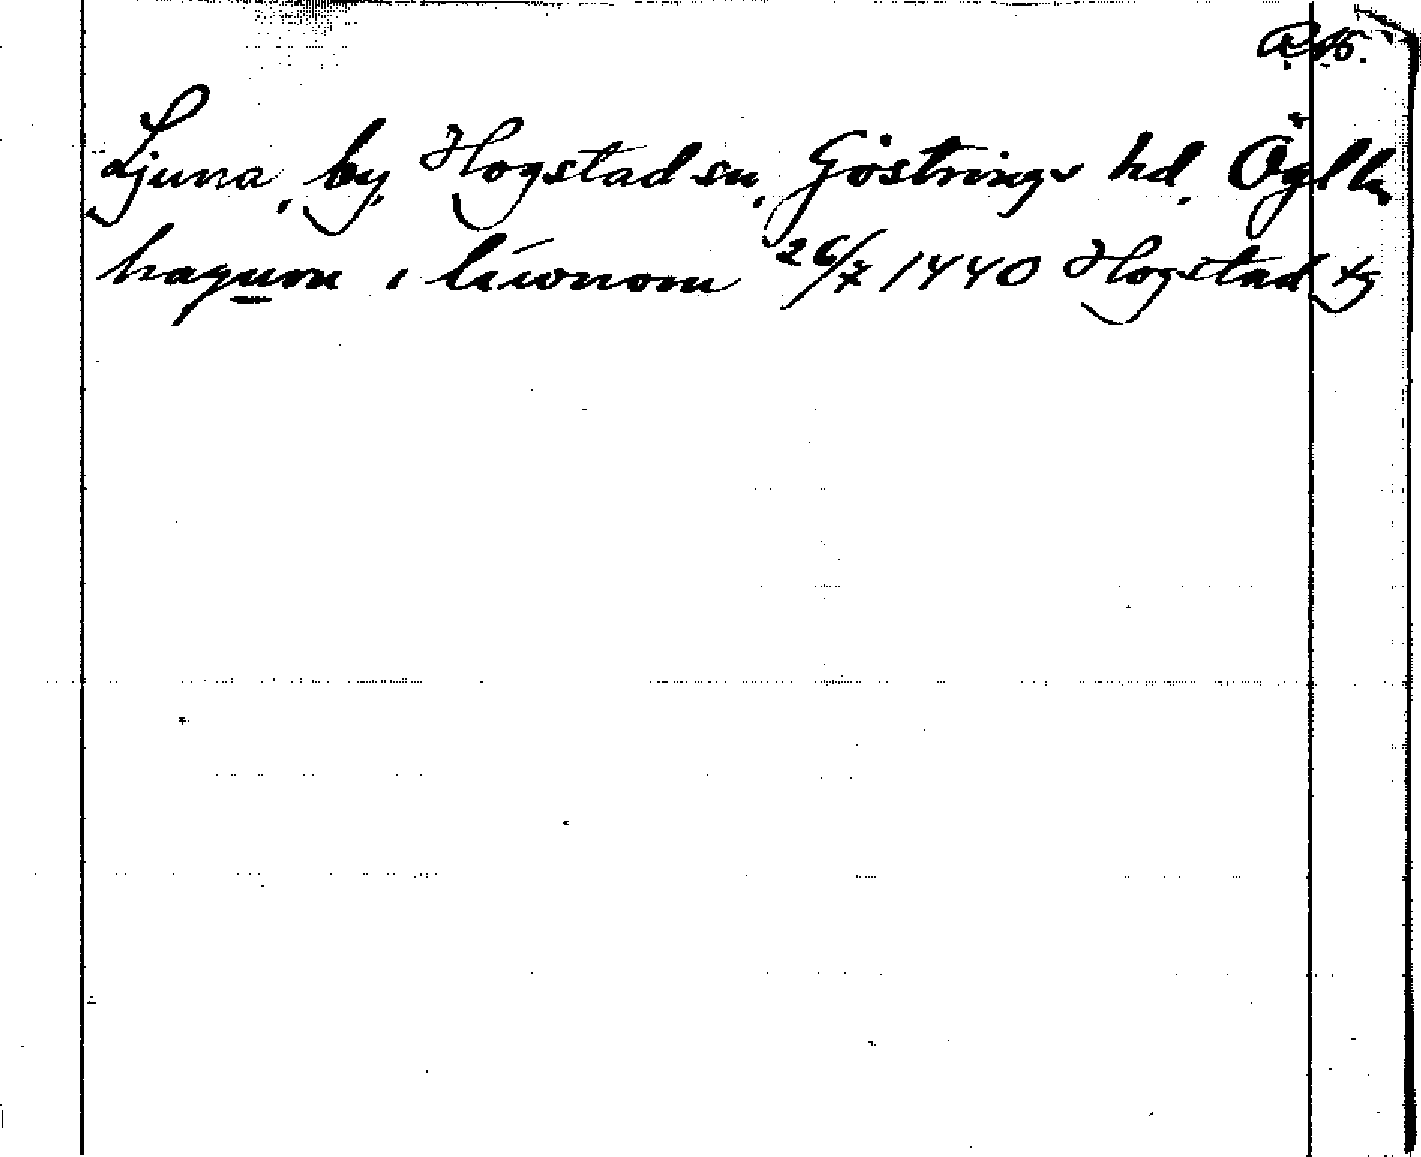 Ljuna, by, Hogstad sn, Göstrings hd, Ögl
hagum i liwnom 26/7 1440 Hogstad